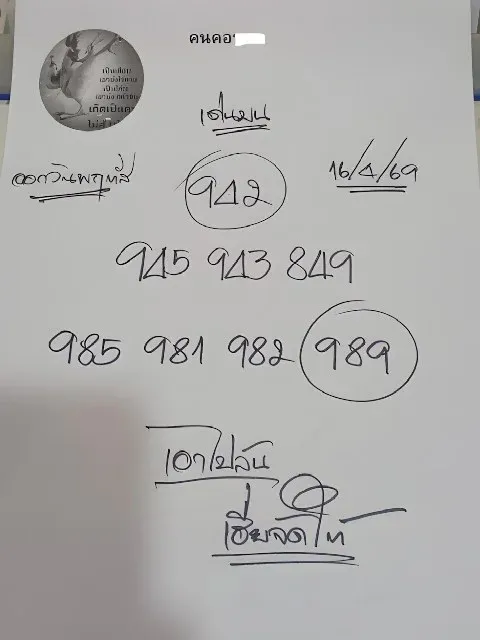 คนคอ
เป็นเสียบ
เขานั่งใจแทน
เป็นให้ถึง
เกิดเป็นค
เด่นบน
ออกวันพฤหัส
942
16/4/69
945 943 849
985 981 982 989
เอาไปลุ้น
เฮียจัดให้